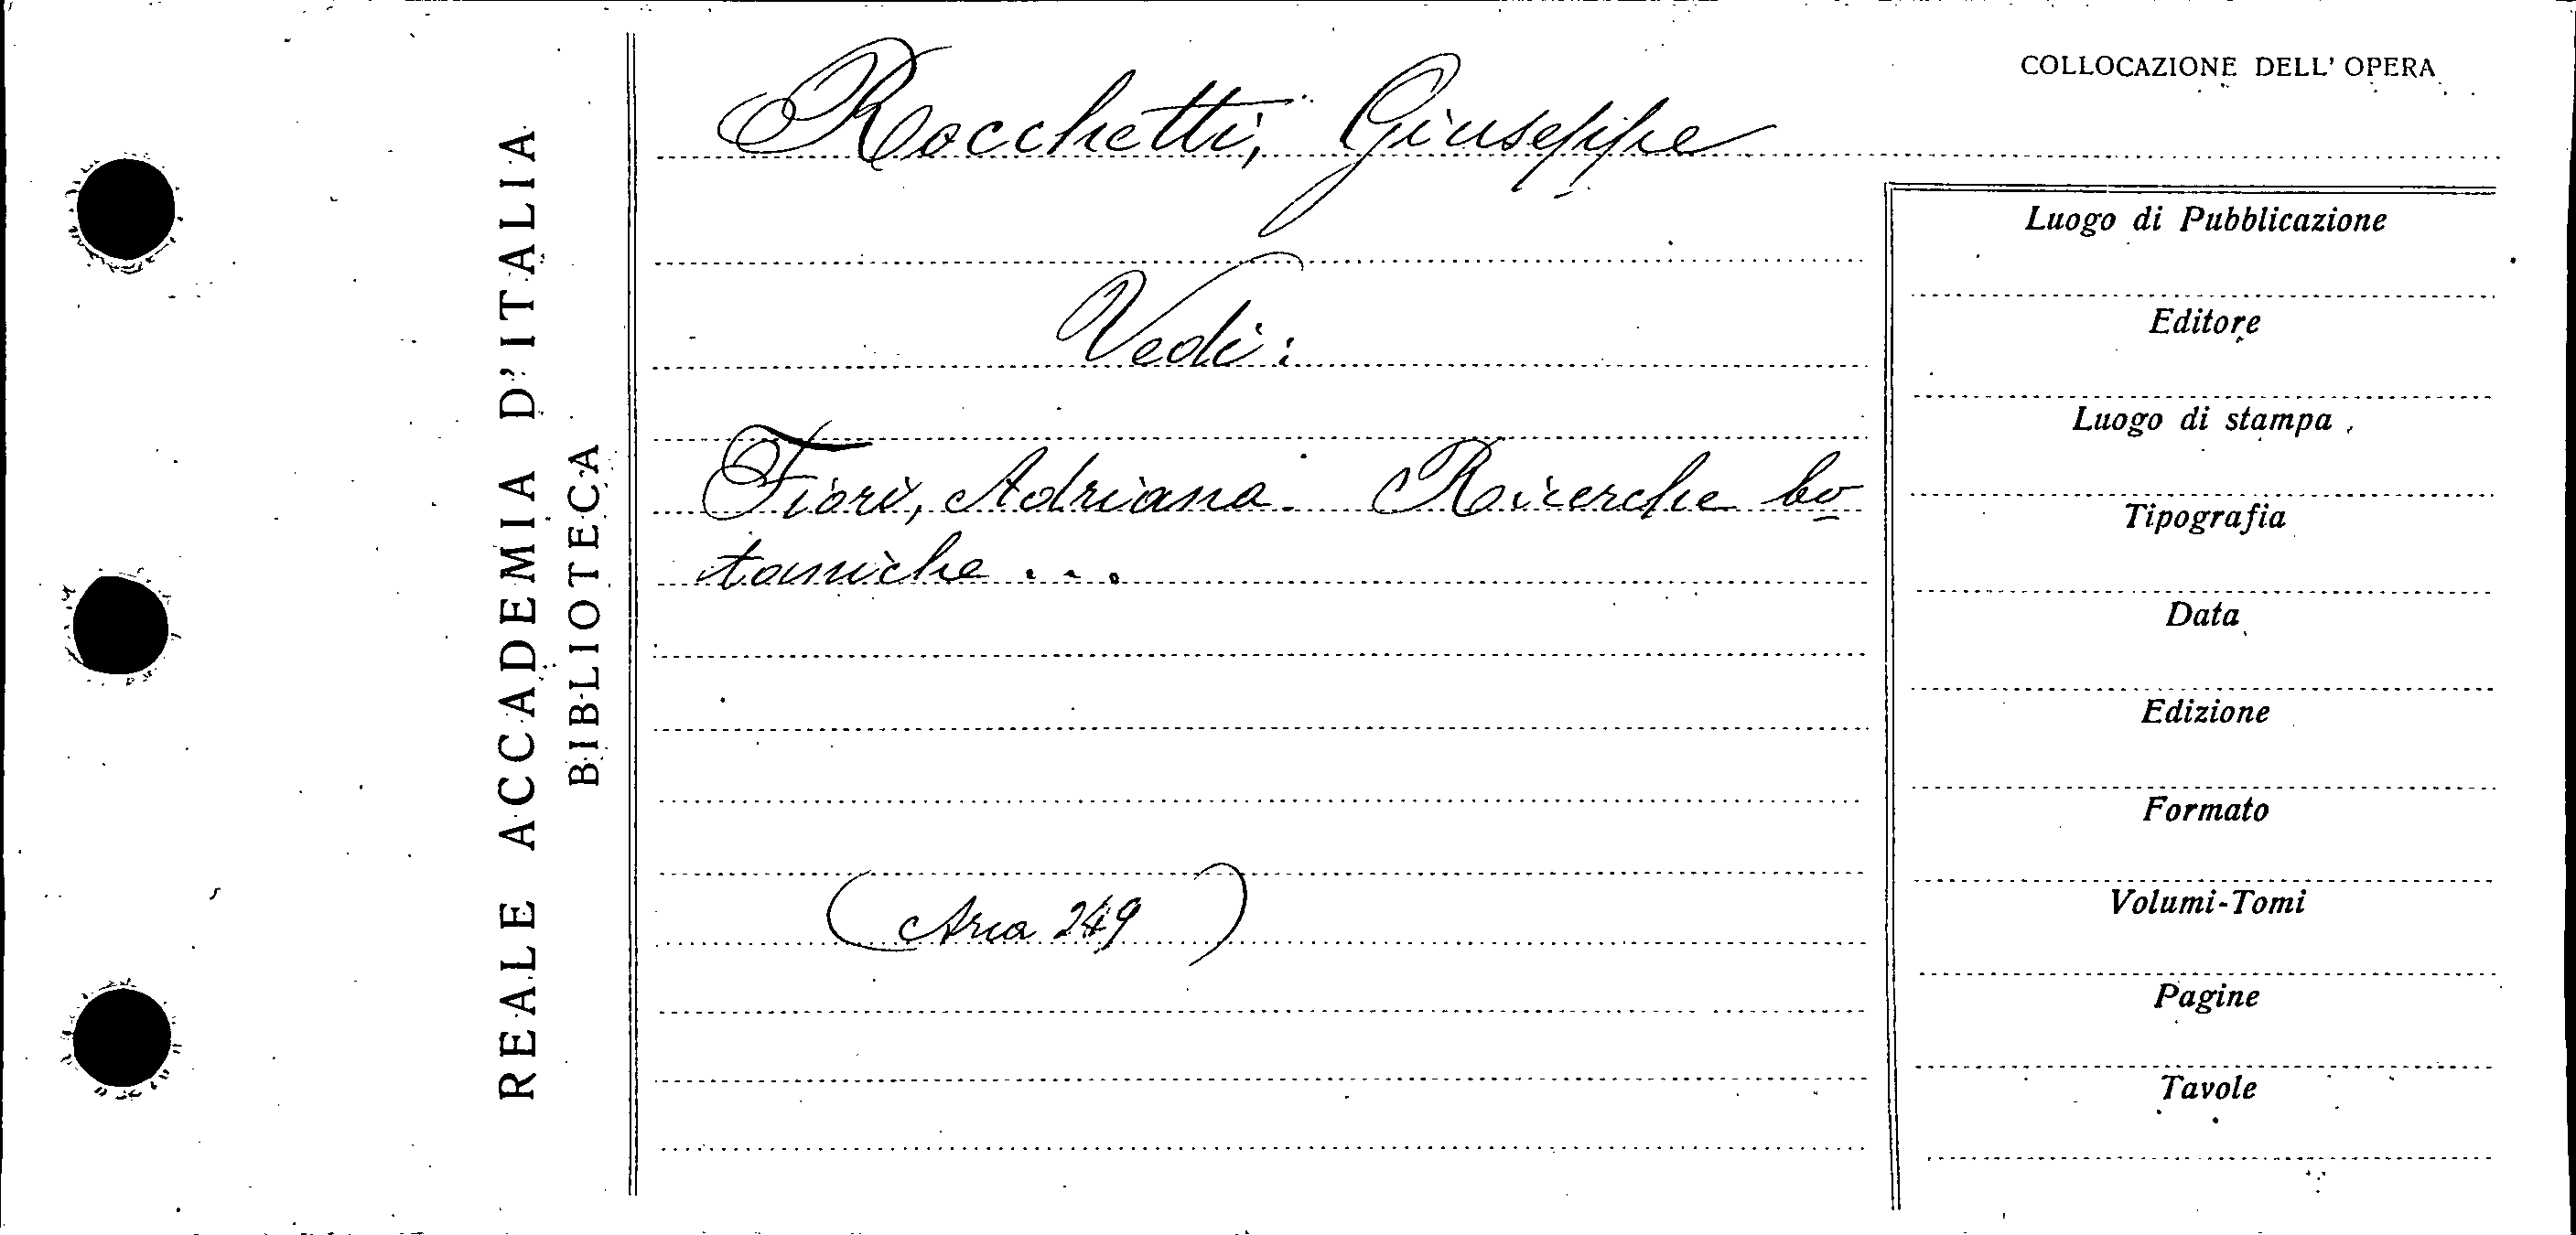 REALE ACCADEMIA D'ITALIA
BIBLIOTECA
COLLOCAZIONE DELL' OPERA
Rocchetti, Giuseppe
Vedi:
Fiori, Adriana. Ricerche bo
taniche ...
(Area 249)
Luogo di Pubblicazione
Editore
Luogo di stampa
Tipografia
Data
Edizione
Formato
Volumi-Tomi
Pagine
Tavole